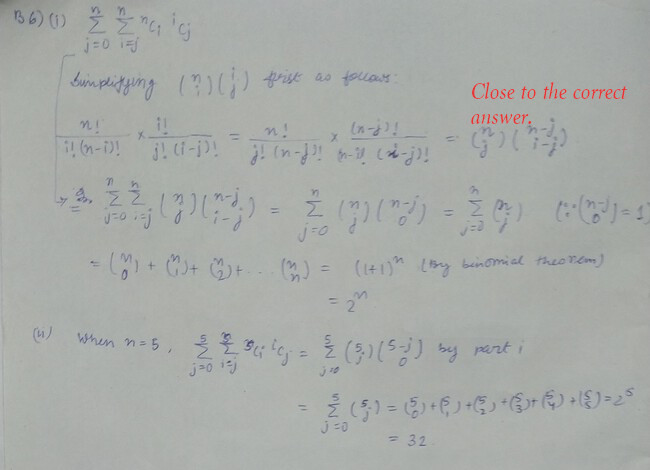 B6) (i) \sum_{j=0}^{n} \sum_{i=j}^{n} {}^nC_i {}^iC_j
Simplifying \binom{n}{i} \binom{i}{j} first as follows:
Close to the correct
answer.
\frac{n!}{i!(n-i)!} × \frac{i!}{j!(i-j)!} = \frac{n!}{j!(n-j)!} × \frac{(n-j)!}{(n-i)!(i-j)!} = \binom{n}{j} \binom{n-j}{i-j}
= \sum_{j=0}^{n} \sum_{i=j}^{n} \binom{n}{j} \binom{n-j}{i-j} = \sum_{j=0}^{n} \binom{n}{j} \binom{n-j}{0} = \sum_{j=0}^{n} \binom{n}{j} (∵ \binom{n-j}{0} = 1)
= \binom{n}{0} + \binom{n}{1} + \binom{n}{2} + ... \binom{n}{n} = (1+1)^n (By binomial theorem)
= 2^n
(ii) When n=5, \sum_{j=0}^{5} \sum_{i=j}^{5} {}^5C_i {}^iC_j = \sum_{j=0}^{5} \binom{5}{j} \binom{5-j}{0} by part i
= \sum_{j=0}^{5} \binom{5}{j} = \binom{5}{0} + \binom{5}{1} + \binom{5}{2} + \binom{5}{3} + \binom{5}{4} + \binom{5}{5} = 2^5
= 32